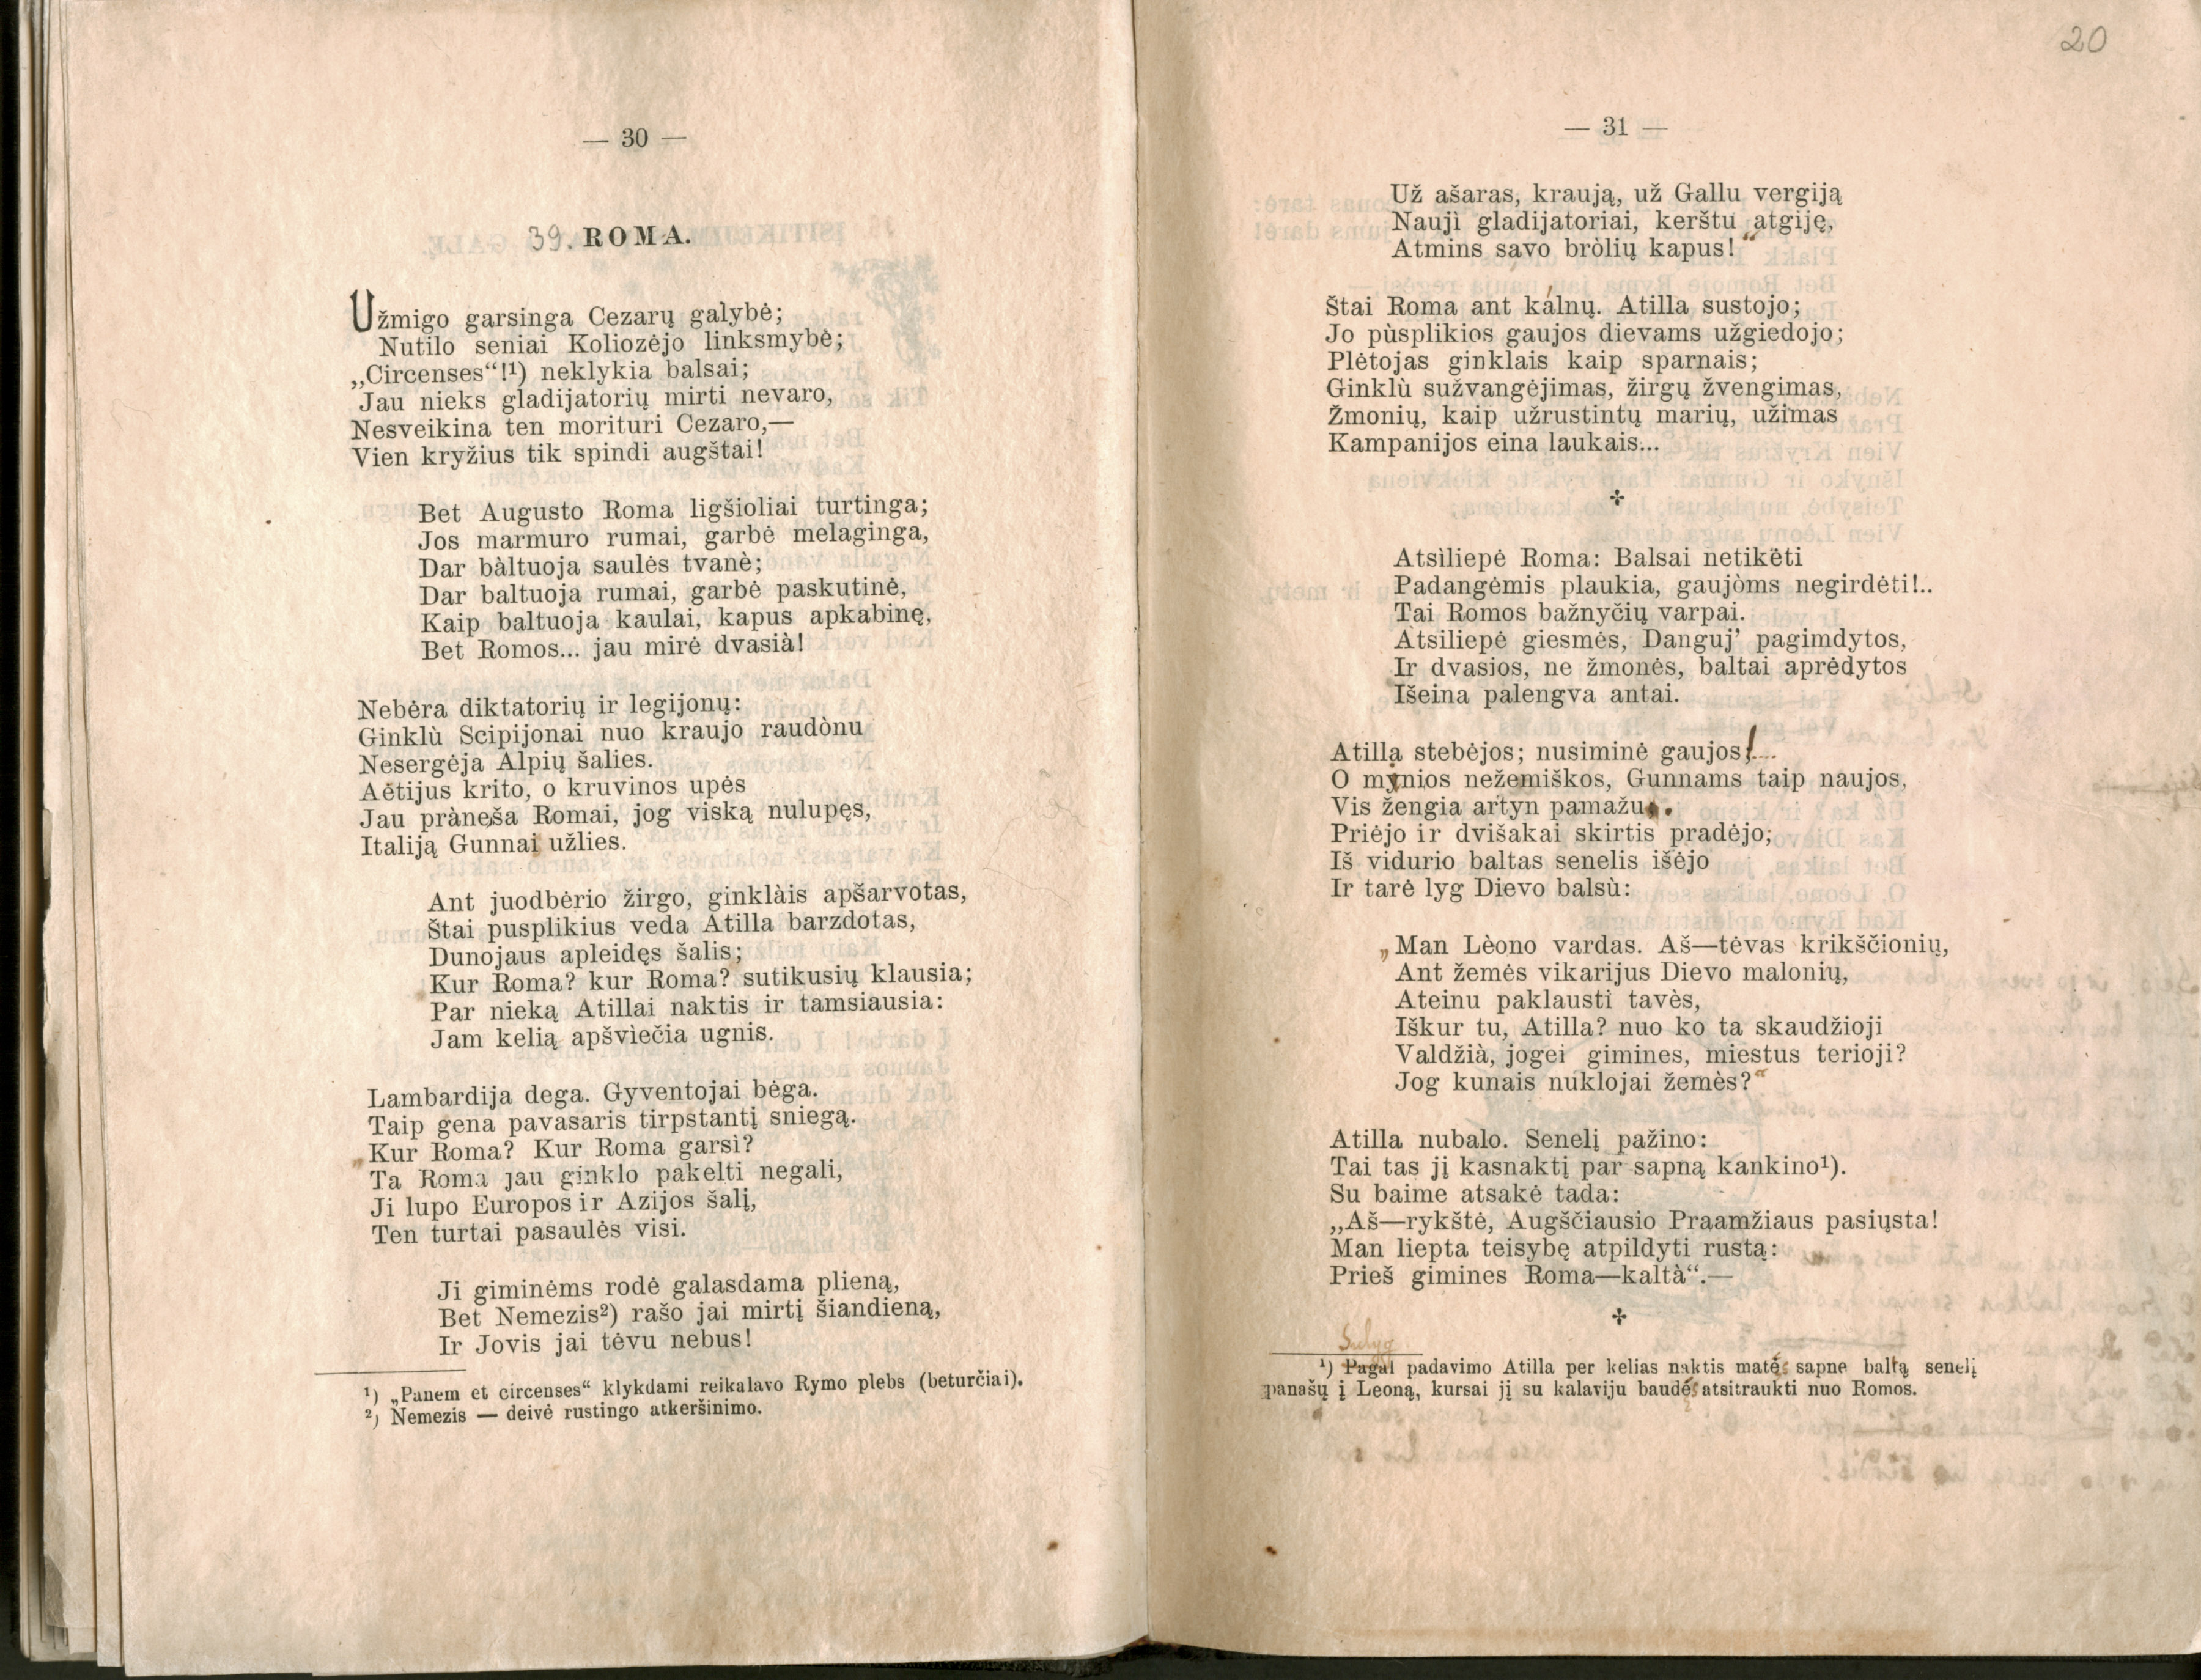 — 30 —
39. ROMA.
Užmigo garsinga Cezarų galybė;
Nutilo seniai Koliozėjo linksmybė;
„Circenses“!¹) neklykia balsai;
Jau nieks gladijatorių mirti nevaro,
Nesveikina ten morituri Cezaro,—
Vien kryžius tik spindi augštai!
Bet Augusto Roma ligšioliai turtinga;
Jos marmuro rumai, garbė melaginga,
Dar bàltuoja saulės tvanè;
Dar baltuoja rumai, garbė paskutinė,
Kaip baltuoja kaulai, kapus apkabinę,
Bet Romos... jau mirė dvasià!
Nebėra diktatorių ir legijonų:
Ginklù Scipijonai nuo kraujo raudònu
Nesergėja Alpių šalies.
Aėtijus krito, o kruvinos upės
Jau pràneša Romai, jog viską nulupęs,
Italiją Gunnai užlies.
Ant juodbėrio žirgo, ginklàis apšarvotas,
Štai pusplikius veda Atilla barzdotas,
Dunojaus apleidęs šalis;
Kur Roma? kur Roma? sutikusių klausia;
Par nieką Atillai naktis ir tamsiausia:
Jam kelią apšviečia ugnis.
Lambardija dega. Gyventojai bėga.
Taip gena pavasaris tirpstantį sniegą.
„Kur Roma? Kur Roma garsi?
Ta Roma jau ginklo pakelti negali,
Ji lupo Europos ir Azijos šalį,
Ten turtai pasaulės visi.
Ji giminėms rodė galasdama plieną,
Bet Nemezis²) rašo jai mirtį šiandieną,
Ir Jovis jai tėvu nebus!
¹) „Panem et circenses“ klykdami reikalavo Rymo plebs (beturčiai).
²) Nemezis — deivė rustingo atkeršinimo.
20
— 31 —
Už ašaras, kraują, už Gallu vergiją
Nauji gladijatoriai, kerštu atgiję,
Atmins savo bròlių kapus!“
Štai Roma ant kálnų. Atilla sustojo;
Jo pùsplikios gaujos dievams užgiedojo;
Plėtojas ginklais kaip sparnais;
Ginklù sužvangėjimas, žirgų žvengimas,
Žmonių, kaip užrustintų marių, užimas
Kampanijos eina laukais...
✢
Atsìliepė Roma: Balsai netikėti
Padangėmis plaukia, gaujòms negirdėti!..
Tai Romos bažnyčių varpai.
Atsiliepė giesmės, Danguj’ pagimdytos,
Ir dvasios, ne žmonės, baltai aprėdytos
Išeina palengva antai.
Atilla stebėjos; nusiminė gaujos!...
O mynios nežemiškos, Gunnams taip naujos,
Vis žengia artyn pamažu.
Priėjo ir dvišakai skirtis pradėjo;
Iš vidurio baltas senelis išėjo
Ir tarė lyg Dievo balsù:
„Man Lèono vardas. Aš—tėvas krikščionių,
Ant žemės vikarijus Dievo malonių,
Ateinu paklausti tavès,
Iškur tu, Atilla? nuo ko ta skaudžioji
Valdžià, jogei gimines, miestus terioji?
Jog kunais nuklojai žemès?“
Atilla nubalo. Senelį pažino:
Tai tas jį kasnaktį par sapną kankino¹).
Su baime atsakė tada:
„Aš—rykštė, Augščiausio Praamžiaus pasiųsta!
Man liepta teisybę atpildyti rustą:
Prieš gimines Roma—kaltà“.—
✢
Sulyg
¹) Pagal padavimo Atilla per kelias naktis matė sapne baltą senelį
panašų į Leoną, kursai jį su kalaviju baudė atsitraukti nuo Romos.